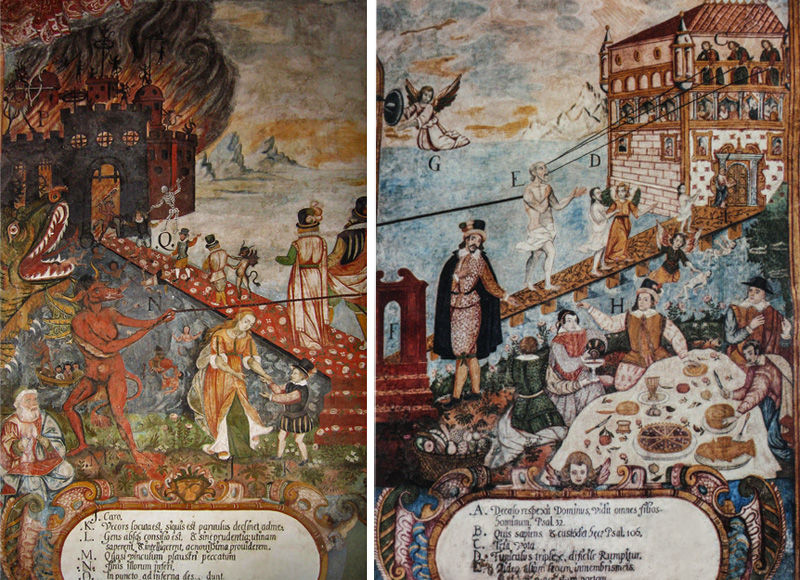 Q
N
J. Caro.
K. Vecors locutaest, siquis est parvulus declinet adme;
L. Gens absqs consilio est, & sineprudentia: utinam
saperent, & intelligerent, acnovissima providerent.
M. Quasi vinculum plaustri peccatum
N. Finis illorum inferi,
In puncto ad inferna des dunt.
C
G
E
D
F
H
A. Decaelo respexit Dominus, vidit omnes filios
hominum, Psal. 32.
B. Quis sapiens & custodiet haec Psal. 106.
C. Tria Vota.
D. Funiculus triplex, difficile Rumpitur.
E. inmembrismeis,